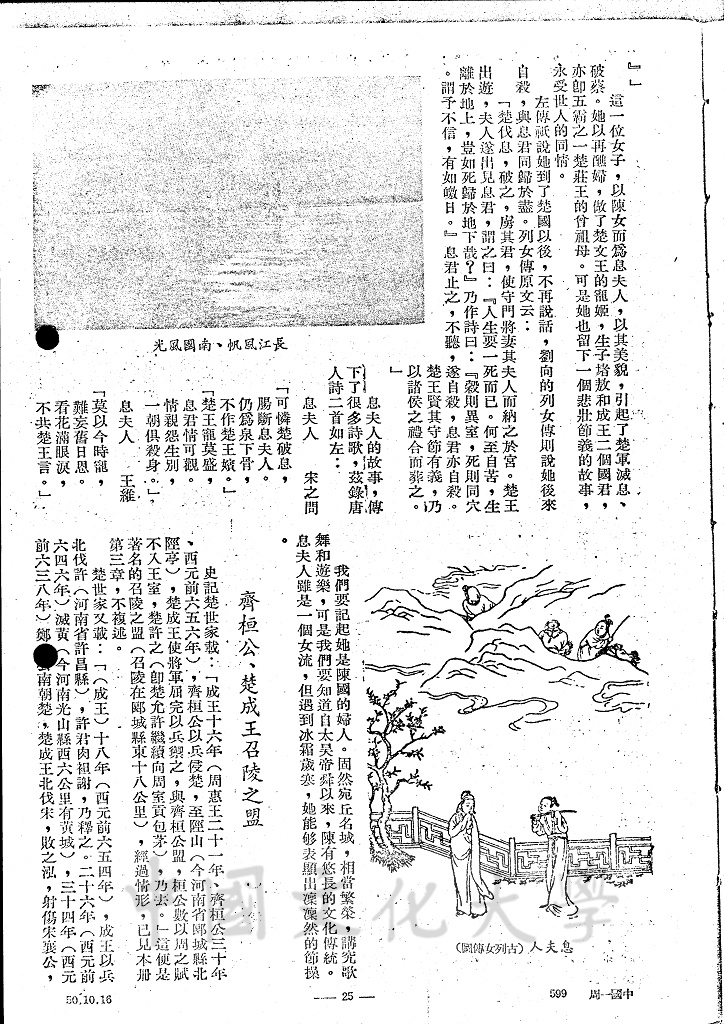 』」
這一位女子，以陳女而爲息夫人，以其美貌，引起了楚軍滅息、
破蔡。她以再醮婦，做了楚文王的寵姬，生子堵敖和成王二個國君，
亦卽五霸之一楚莊王的曾祖母。可是她也留下一個悲壯節義的故事，
永受世人的同情。
左傳祇說她到了楚國以後，不再說話，劉向的列女傳則說她後來
自殺，與息君同歸於盡。列女傳原文云：
「楚伐息，破之，虜其君，使守門將妻其夫人而納之於宮。楚王
出遊，夫人遂出見息君，謂之曰：『人生要一死而已。何至自苦，生
離於地上，豈如死歸於地下哉？』乃作詩曰：『穀則異室，死則同穴
。謂予不信，有如皦日。』息君止之，不聽，遂自殺，息君亦自殺。
楚王賢其守節有義，乃
以諸侯之禮合而葬之。
」
長江風帆、南國風光
息夫人的故事，傳
下了很多詩歌，茲錄唐
人詩二首如左：
息夫人　宋之問
「可憐楚破息，
腸斷息夫人。
仍爲泉下骨，
不作楚王嬪。
楚王寵莫盛，
息君情可觀。
情親怨生別，
一朝俱殺身。」
息夫人　王維
「莫以今時寵，
難妄舊日恩。
看花滿眼淚，
不共楚王言。」
息夫人（古列女傳圖）
我們要記起她是陳國的婦人。固然宛丘名城，相當繁榮，講究歌
舞和遊樂，可是我們要知道自太昊帝舜以來，陳有悠長的文化傳統。
息夫人雖是一個女流，但遇到冰霜歲寒，她能够表顯出凜凜然的節操
。
齊桓公、楚成王召陵之盟
史記楚世家載：「成王十六年（周惠王二十一年、齊桓公三十年
、西元前六五六年），齊桓公以兵侵楚，至陘山（今河南省郾城縣北
陘亭），楚成王使將軍屈完以兵禦之，與齊桓公盟，桓公數以周之賦
不入王室，楚許之（卽楚允許繼續向周室貢包茅），乃去。」這便是
著名的召陵之盟（召陵在郾城縣東十八公里），經過情形，已見本册
第三章，不複述。
楚世家又載：「（成王）十八年（西元前六五四年），成王以兵
北伐許（河南省許昌縣），許君肉袒謝，乃釋之。二十六年（西元前
六四六年）滅黃（今河南光山縣西六公里有黃城），三十四年（西元
前六三八年）鄭　　南朝楚，楚成王北伐宋，敗之泓，射傷宋襄公，
50.10.16
— 25 —
599　周一國中
中國文化大學